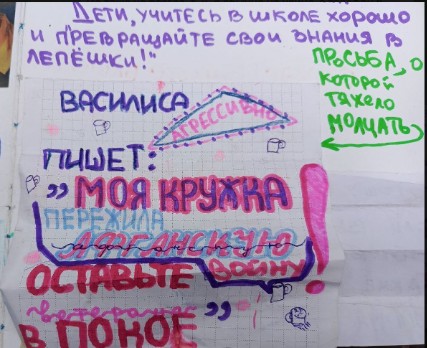 Дети, учитесь в школе хорошо
и превращайте свои знания в
лепёшки!"
просьба, о
которой
тяжело
молчать
Василиса
агрессивно
пишет:
„Моя кружка
пережила
афганскую
войну
оставьте
ветерана"
в покое